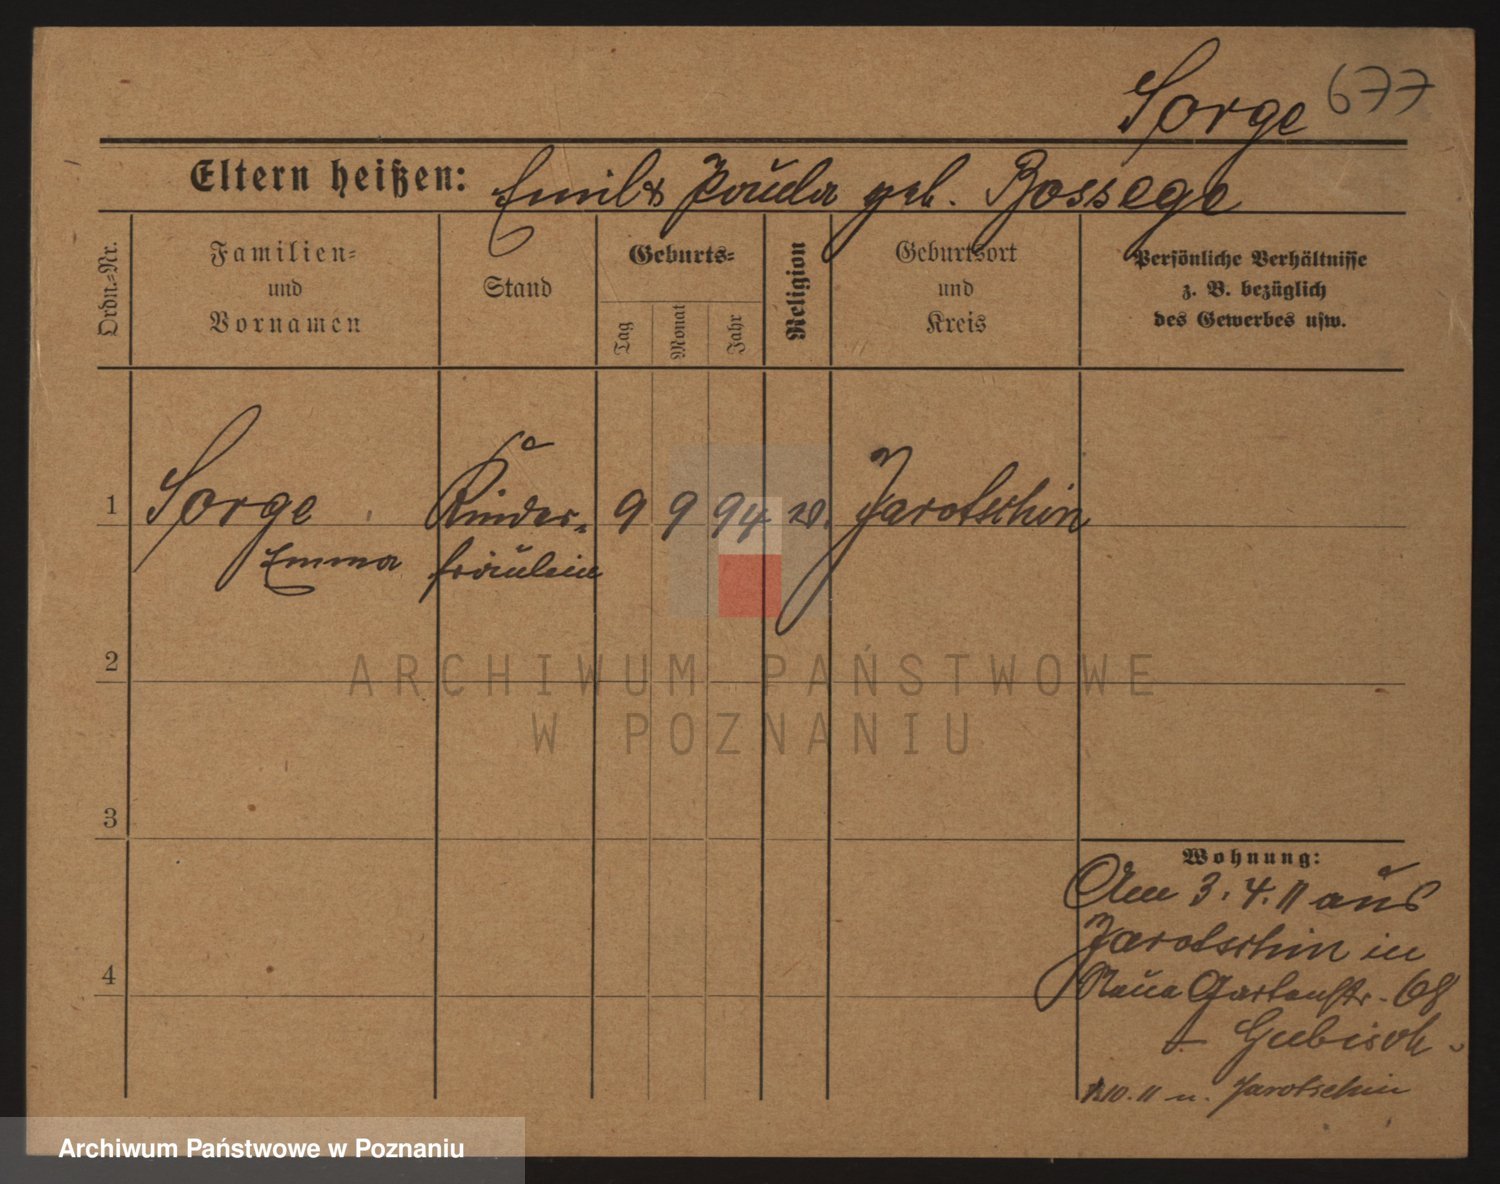 Sorge 677
Eltern heißen: Emil & Paula geb. Bossege
Ordn.-Nr.
Familien-
und
Vornamen
Stand
Geburts-
Tag
Monat
Jahr
Religion
Geburtsort
und
Kreis
Persönliche Verhältnisse
z. B. bezüglich
des Gewerbes usw.
1 Sorge Kinder- 9 9 94 Jarotschin
Emma fräulein
2
3
4
Wohnung:
Am 3.4.11 aus
Jarotschin in
Neue Gartenstr. 68
Gubisch
10.11 n. Jarotschin
ARCHIWUM PAŃSTWOWE
W POZNANIU
Archiwum Państwowe w Poznaniu